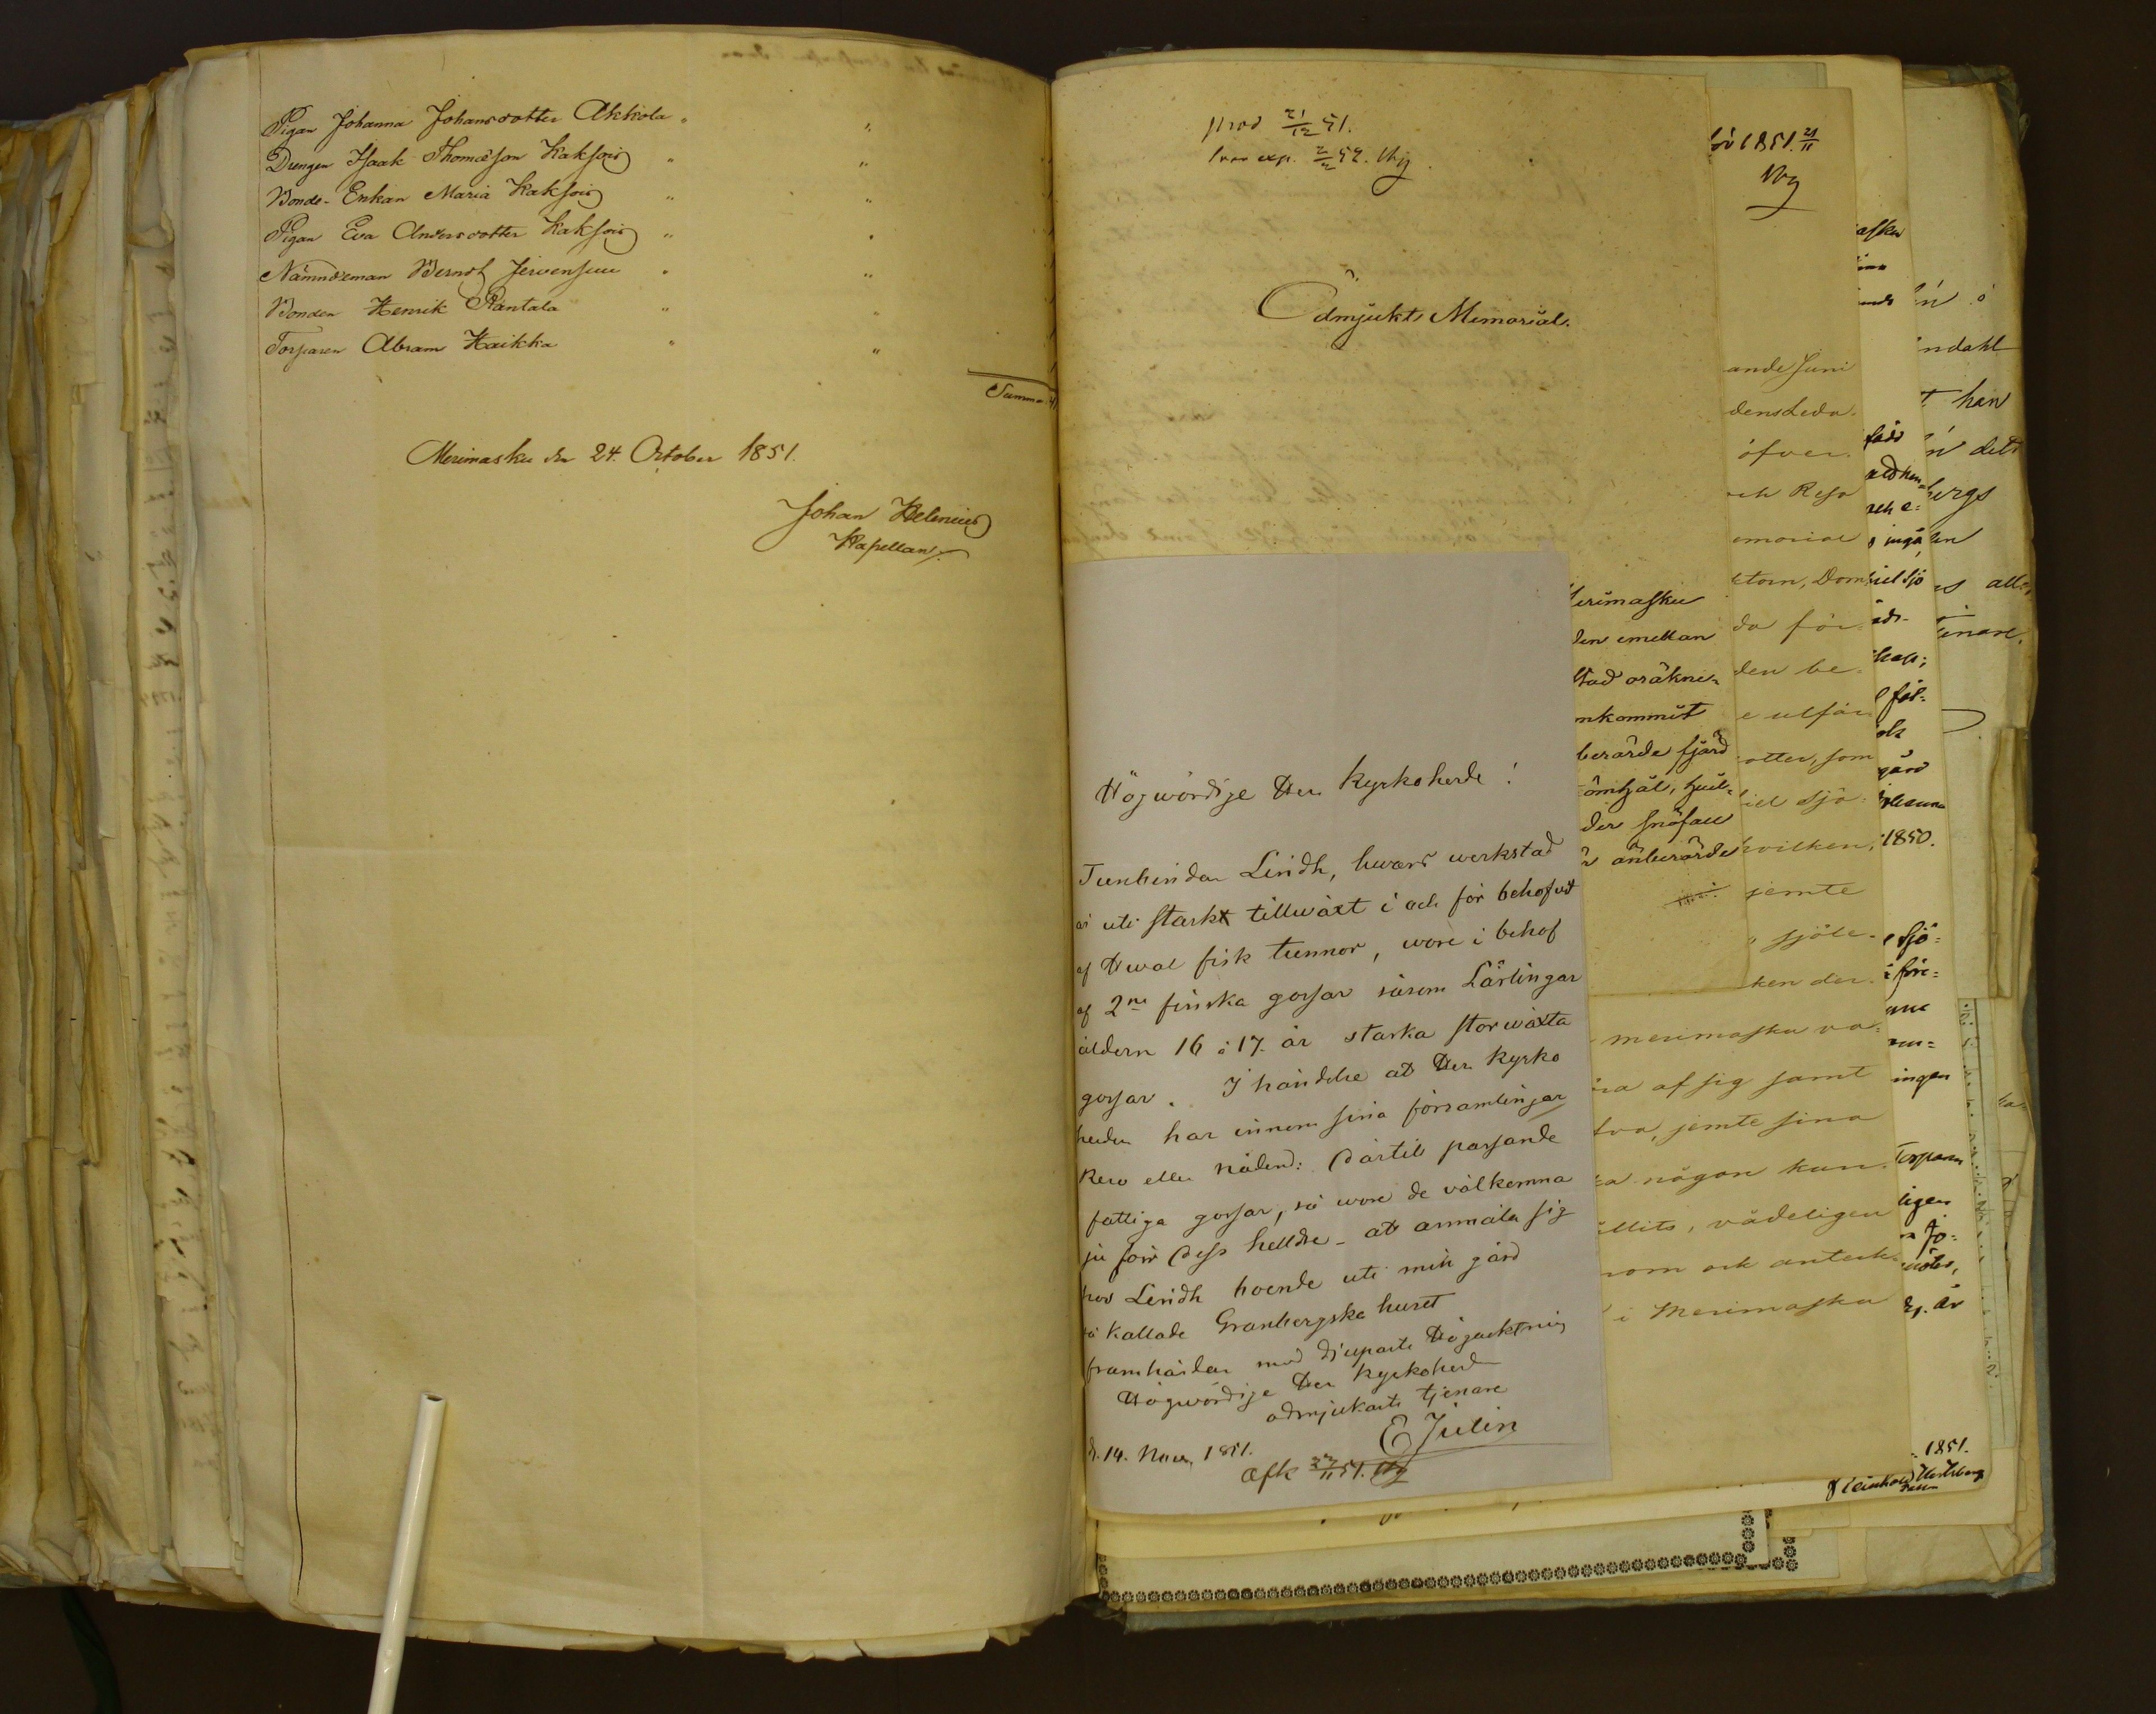 Pigan Johanna Johansdotter Akkola " "
Drengen Isaak Thomasson Kaksois " "
Bonde-Enkan Maria Kaksois " "
Pigan Eva Andersdotter Kaksois " "
Nämndeman Berndt Jervensuu " "
Bonden Henrik Rantala " "
Torparen Abram Haikka " "
Summa
Merimasku den 24. October 1851.
Johan Helenius
Kapellan
prod 21/12 51.
exp. 2/2 52. Wg
Ödmjukt Memorial.
Högwördige Herr Kyrkoherde!
Tunbindar Lindh, hwars werkstad
är uti starkt tillwäxt i och för behofvet
af Hwal fisk tunnor, wore i behof
af 2ne finska gossar såsom Lärlingar
åldern 16 à 17 år starka storwäxta
gossar. I händelse at Herr Kyrko
herden har innom sina församlingar
Rew eller Nådend: därtill passande
fattiga gossar, så wore de välkomna
ju förr dess helldre - at anmäla sig
hos Lindh boende uti min gård
så kallade Granbergska huset
framhärdar med djupaste Högacktning
Högwördige Herr Kyrkoherde
ödmjukaste tjenare
E Julin
d. 14. Nov. 1851.
Afk 22/11 51. Wg
erimasku
den emellan
stad oräkne=
mkommit
berörde fjärd
der snöfall
anberörde
1851. 21/11
Wg
ande Juni
densleda
öfver
och Reso
emorial
ktorn, Dom
da för
den be=
otter, som
iel Sjö=
hvilken,
jemte
sjöle=
ken der
merimasku va=
ra af sig samt
tva, jemte sina
a någon kun
ällits, vådeligen
nom och anteck=
i Merimasku
asku
född
och e=
ingå
iel Sjö
för=
gård
1850.
Sjö=
före=
ingen
Torparen
ligen
Jo=
år
1851.
ndahl
han
det
bergs
all
enare.